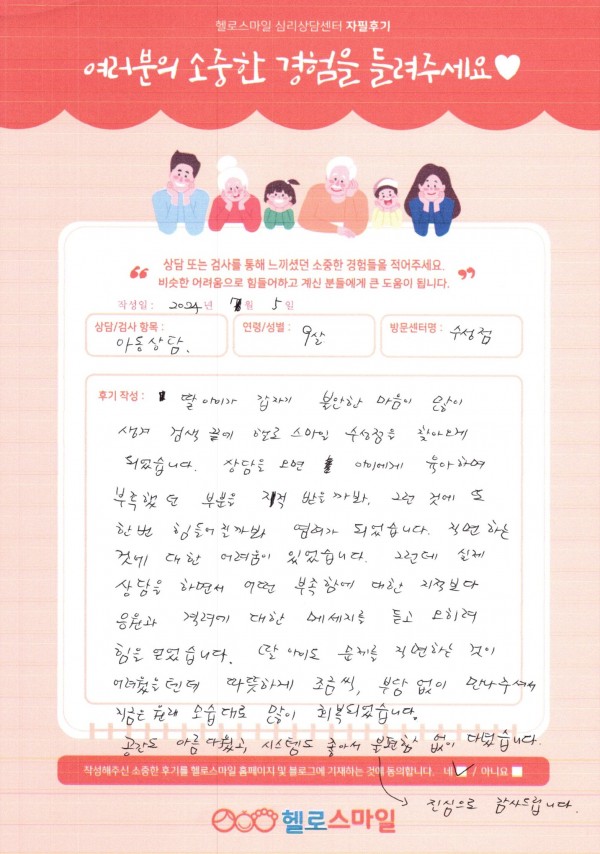 헬로스마일 심리상담센터 자필후기
여러분의 소중한 경험을 들려주세요
상담 또는 검사를 통해 느끼셨던 소중한 경험들을 적어주세요.
비슷한 어려움으로 힘들어하고 계신 분들에게 큰 도움이 됩니다.
작성일 : 2024년 7월 5일
상담/검사 항목 : 아동상담.
연령/성별 : 9살
방문센터명 : 수성점
후기 작성 : 딸 아이가 갑자기 불안한 마음이 많이
생겨 검색 끝에 헬로 스마일 수성점을 찾아오게
되었습니다. 상담을 오면 아이에게 육아하며
부족했던 부분을 지적 받을까봐, 그런 것에 또
한번 힘들어질까봐 염려가 되었습니다. 직면하는
것에 대한 어려움이 있었습니다. 그런데 실제
상담을 하면서 어떤 부족함에 대한 지적보다
응원과 격려에 대한 메세지를 듣고 오히려
힘을 얻었습니다. 딸 아이도 문제를 직면하는 것이
어려웠을텐데 따뜻하게 조금씩, 부담 없이 만나주셔서
지금은 원래 모습대로 많이 회복되었습니다.
공간도 아름다웠고, 시스템도 좋아서 불편함 없이 다녔습니다.
작성해주신 소중한 후기를 헬로스마일 홈페이지 및 블로그에 기재하는 것에 동의합니다. 네 / 아니요
진심으로 감사드립니다.
헬로스마일